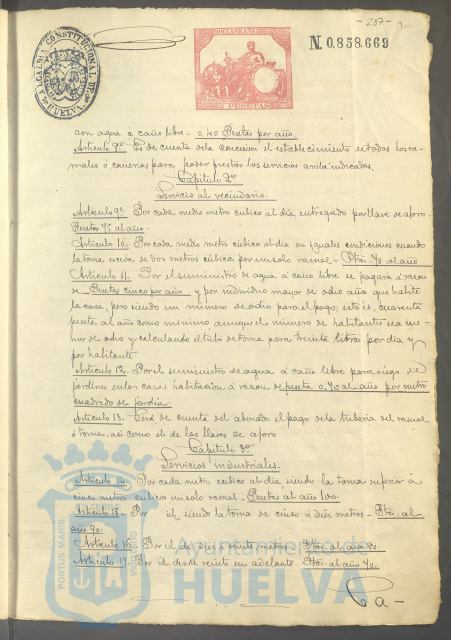 - 287 -
N. 0.858.669
ALCALDIA CONSTITUCIONAL DE HUELVA
PESETAS
con agua á caño libre - 0,40 Pesetas por año.
Articulo 8º. Es de cuenta de la Concesion el establecimiento de todos los ra-
males ó cañerias para poder prestar los servicios arriba indicados.
Capitulo 2º
Servicio al vecindario.
Articulo 9º Por cada medio metro cúbico al dia, entregado por llave de aforo
Pesetas 75 al año.
Articulo 10. Por cada medio metro cúbico al dia en iguales condiciones cuando
la toma esceda de dos metros cúbicos por un solo ramal - Ptas. 70 al año
Articulo 11. Por el suministro de agua á caño libre se pagará á razon
de Pesetas cinco por año y por individuo mayor de ocho años que habite
la casa, pero siendo un número de ocho para el pago, esto es, cuarenta
pesetas al año como mínimo aunque el número de habitantes sea me-
nor de ocho y calculando el tipo de toma para treinta litros por dia y
por habitante.
Articulo 12. Por el suministro de agua á caño libre para riego de
jardines en las casas habitacion á razon de peseta 0,70 al año por metro
cuadrado de jardin.
Articulo 13. Será de cuenta del abonado el pago de la tuberia del ramal
ó toma, asi como el de las llaves de aforo
Capitulo 3º
Servicios industriales.
Articulo 14. Por cada metro cúbico al dia siendo la toma inferior á
cinco metros cúbicos un solo ramal - Pesetas al año 100.
Articulo 15. Por id. siendo la toma de cinco á diez metros - Ptas. al
año 90.
Articulo 16. Por id. de diez á veinte metros - Ptas. al año 80.
Articulo 17. Por id. desde veinte en adelante. Ptas. al año 70.
Ca-
PORTUS MARIS
Ayuntamiento de
HUELVA